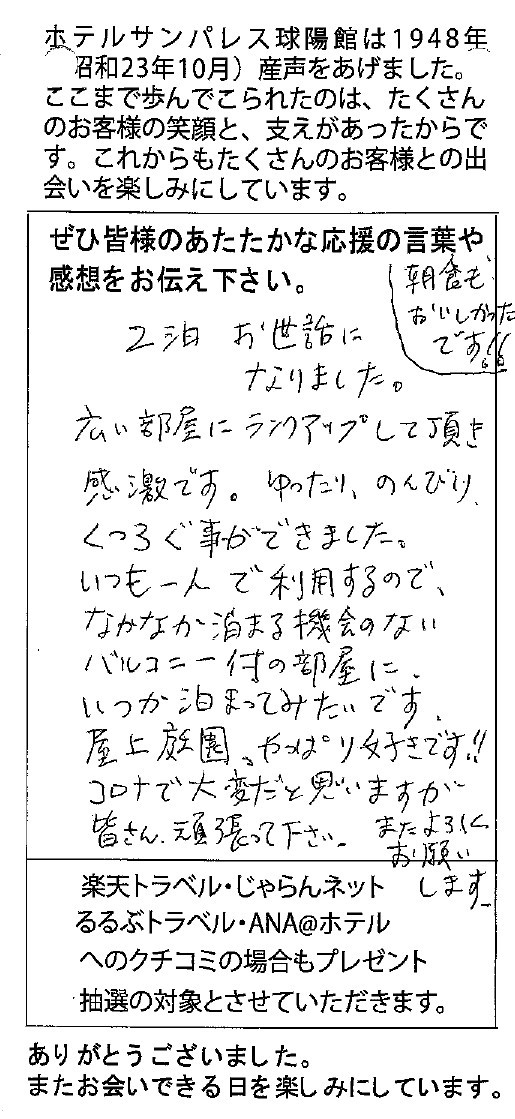 ホテルサンパレス球陽館は1948年
昭和23年10月）産声をあげました。
ここまで歩んでこられたのは、たくさん
のお客様の笑顔と、支えがあったからで
す。これからもたくさんのお客様との出
会いを楽しみにしています。
ぜひ皆様のあたたかな応援の言葉や
感想をお伝え下さい。
朝食も
おいしかった
です!!
2泊 お世話に
なりました。
広い部屋にランクアップして頂き
感激です。ゆったり、のんびり、
くつろぐ事ができました。
いつも一人で利用するので、
なかなか泊まる機会のない
バルコニー付の部屋に、
いつか泊まってみたいです。
屋上庭園、やっぱり好きです!!
コロナで大変だと思いますが
皆さん、頑張って下さい。
またよろしく
お願い
します。
楽天トラベル・じゃらんネット
るるぶトラベル・ANA@ホテル
へのクチコミの場合もプレゼント
抽選の対象とさせていただきます。
ありがとうございました。
またお会いできる日を楽しみにしています。